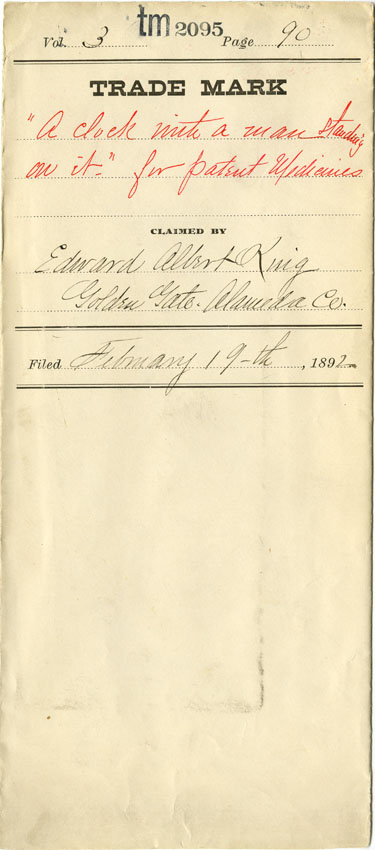 tm 2095
Vol. 3 Page 90
TRADE MARK
"A clock with a man standing
on it." for patent Medicines
CLAIMED BY
Edward Albert King
Golden Gate. Alameda Co.
Filed February 19-th, 1892